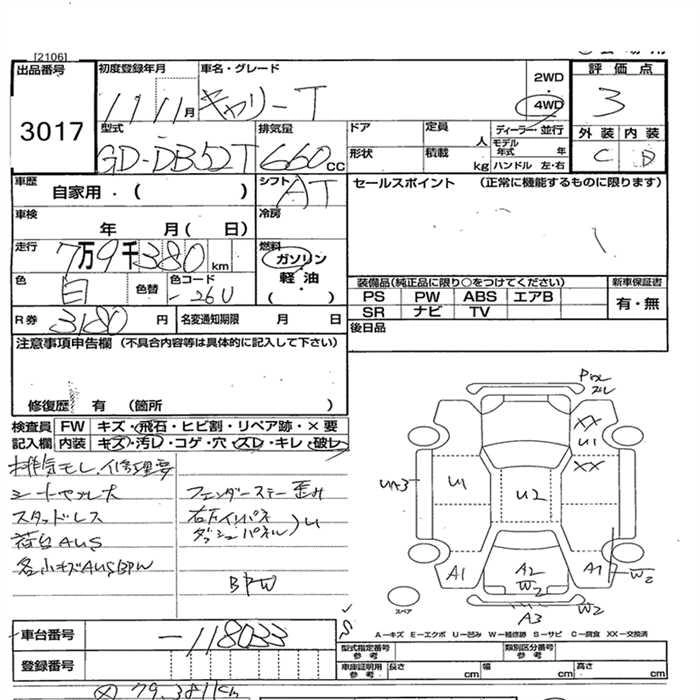 [2106]
出品番号
3017
初度登録年月
11 11 月
車名・グレード
キャリーT
2WD
・
4WD
評価点
3
外装 内装
C D
型式
GD-DB52T
排気量
660 CC
ドア
定員
人
形状
積載
kg
ディーラー・並行
モデル年式 年
ハンドル 左・右
車歴
自家用・( )
シフト
AT
セールスポイント (正常に機能するものに限ります)
車検
年 月( 日)
冷房
走行
7万9千380 km
燃料
ガソリン
軽油
( )
色
白
色替
色コード
-26U
装備品(純正品に限り○をつけてください)
PS PW ABS エアB
SR ナビ TV
新車保証書
有・無
R券
3180 円
名変通知期限 月 日
後日品
注意事項申告欄 (不具合内容等は具体的に記入して下さい)
修復歴 有 (箇所 )
検査員 FW キズ・飛石・ヒビ割・リペア跡・×要
記入欄 内装 キズ・汚レ・コゲ・穴・スレ・キレ・破レ
排気モレ、修理要
シートヤブレ大
スタッドレス
荷台AUS
各小キズAUSBPW
フェンダーステー歪み
右下インパネ
ダッシュパネル)U
BPW
ズレ
XX
U1
XX
UA3
U1
U2
A1
A2
W2
A1
W2
W2
A3
スペア
A-キズ E-エクボ U-凹み W-補修跡 S-サビ C-腐食 XX-交換済
車台番号
-118033
登録番号
型式指定番号
参考
類別区分番号
参考
車庫証明用
参考
長さ cm
幅 cm
高さ cm
79,381km